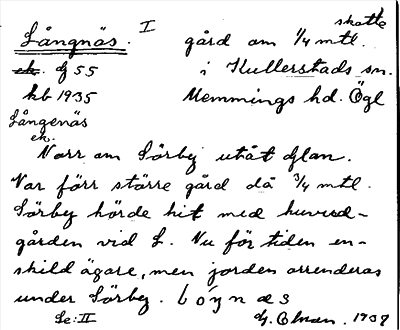 skatte
Långnäs. I gård om 1/4 mtl.
ek. Gj 55 i Kullerstads sn.
kb 1935 Memmings hd. Ögl
Långenäs
ek.
Norr om Sörby utåt Glan.
Var förr större gård då 3/4 mtl.
Sörby hörde hit med huvud-
gården vid L. Nu för tiden en-
skild ägare, men jorden arrenderas
under Sörby.
Se: II 1937